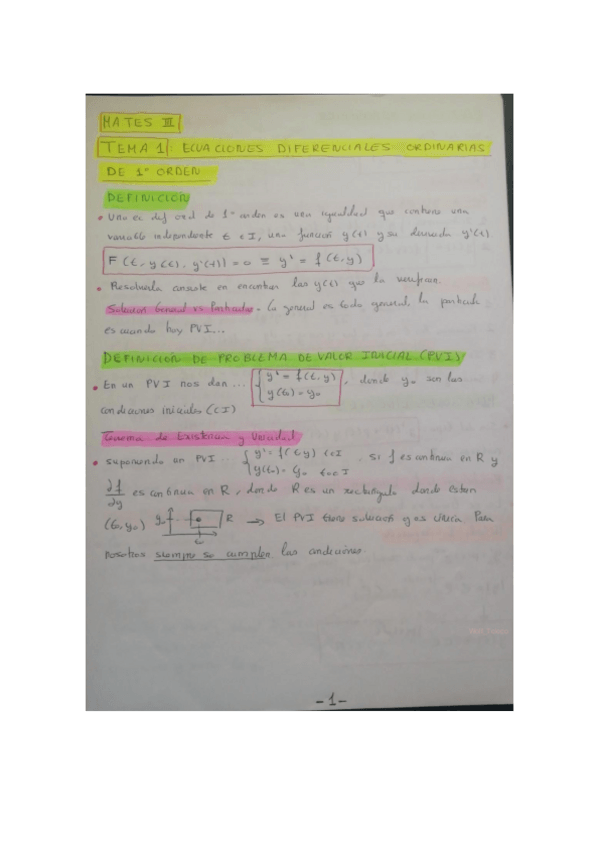 MATES III
TEMA 1: ECUACIONES DIFERENCIALES ORDINARIAS
DE 1er ORDEN
DEFINICIÓN
• Una ec dif ord de 1er orden es una igualdad que contiene una
variable independiente t ∈ I, una función y(t) y su derivada y'(t)
F(t, y(t), y'(t)) = 0 ≡ y' = f(t, y)
• Resolverla consiste en encontrar las y(t) que la verifican.
Solución General vs Particular. La general es todo general, la particular
es cuando hay PVI...
DEFINICIÓN DE PROBLEMA DE VALOR INICIAL (PVI)
• En un PVI nos dan ... { y' = f(t, y) y(t0) = y0 , donde y0 son las
condiciones iniciales (CI)
Teorema de Existencia y Unicidad
• suponiendo un PVI ... { y' = f(t y) t∈I y(t0) = y0 t0∈I . Si f es continua en R y
∂f/∂y es continua en R, donde R es un rectángulo donde están
(t0, y0) y0 R t0 → El PVI tiene solución y es única. Para
nosotros siempre se cumplen las condiciones.
-1-